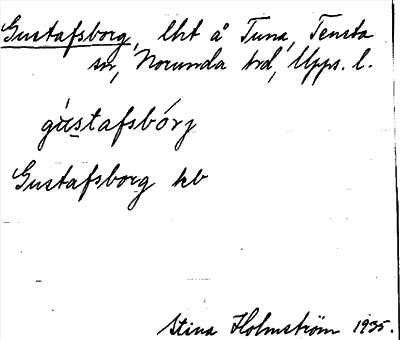 Gustafsborg, lht å Tuna, Tensta
sn, Norunda hd, Upps. l.
gùstafsbórj
Gustafsborg kb
Stina Holmström 1935.